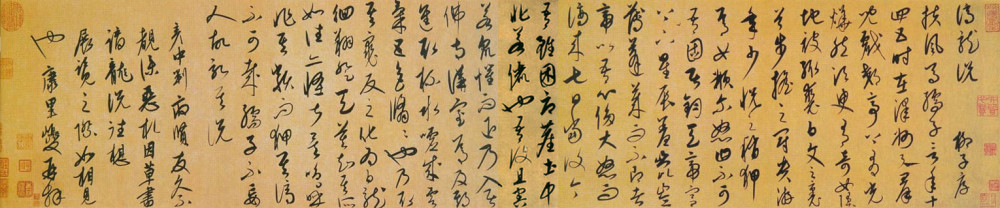 謫龍說 柳子厚
扶風馬孺子言年十
四五時在澤州與群
兒戲郊亭上有光
然頃有奇女墜
地被緅裘白文之裏
首步搖之冠貴游
年少悦之稍狎
焉女頩尔怒曰不可
吾固居鈞天帝宮下
上星辰羞崑崙
薄蓬萊而不即者
帝以吾心侈大怒而
謫來七日當復今
吾雖困辱塵土中
非若儷也吾復且害
若衆懼而退乃入居
佛寺講室焉及期
進取杯水噓成雲
氣五色翛翛也乃取
其裘反之化為白龍
徊翔登天莫知其所
如往亦怪甚矣嗚呼
非其類而狎其謫
不可哉孺子不妄
人故記其說
彥中判府賢友久
惡札因草書
謫龍說往想
展覽之際如相見
也 康里巎再拜